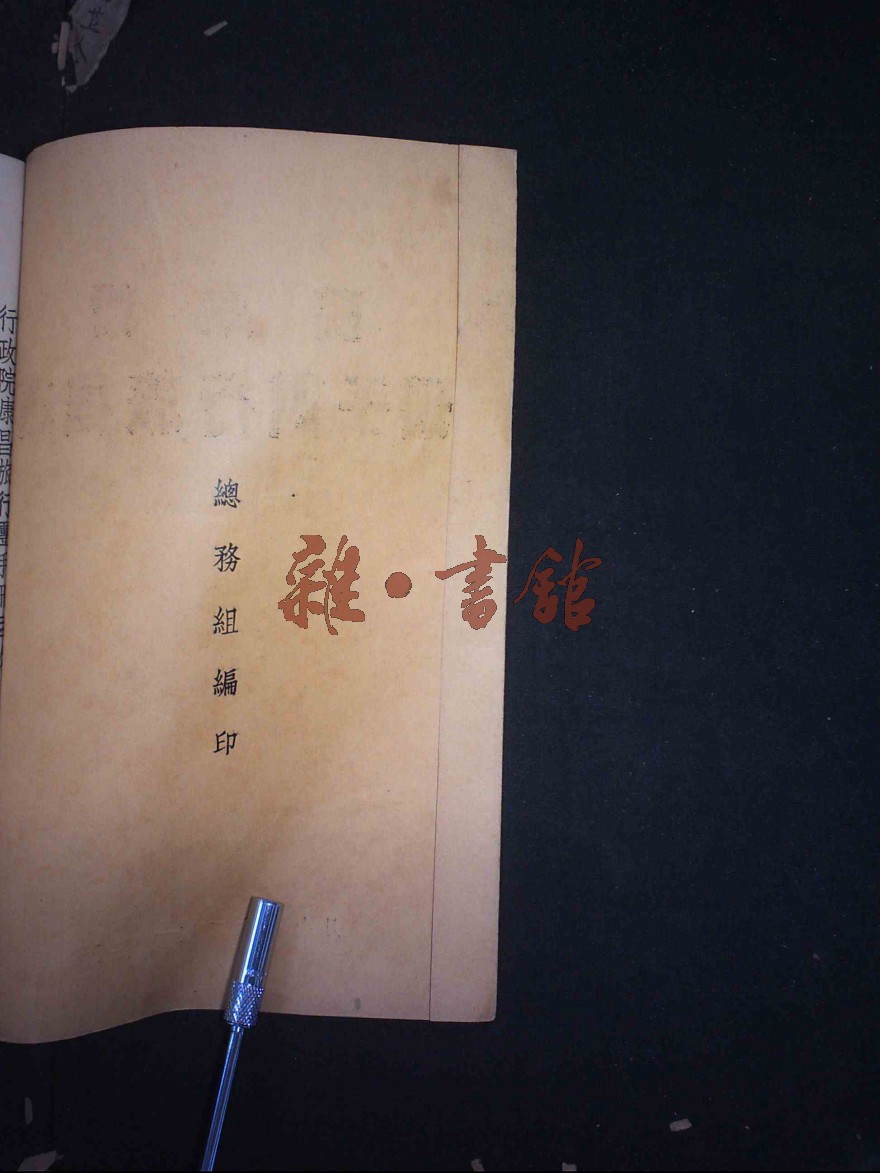 總務組編印
行政院康昌旅行團
雜·書館